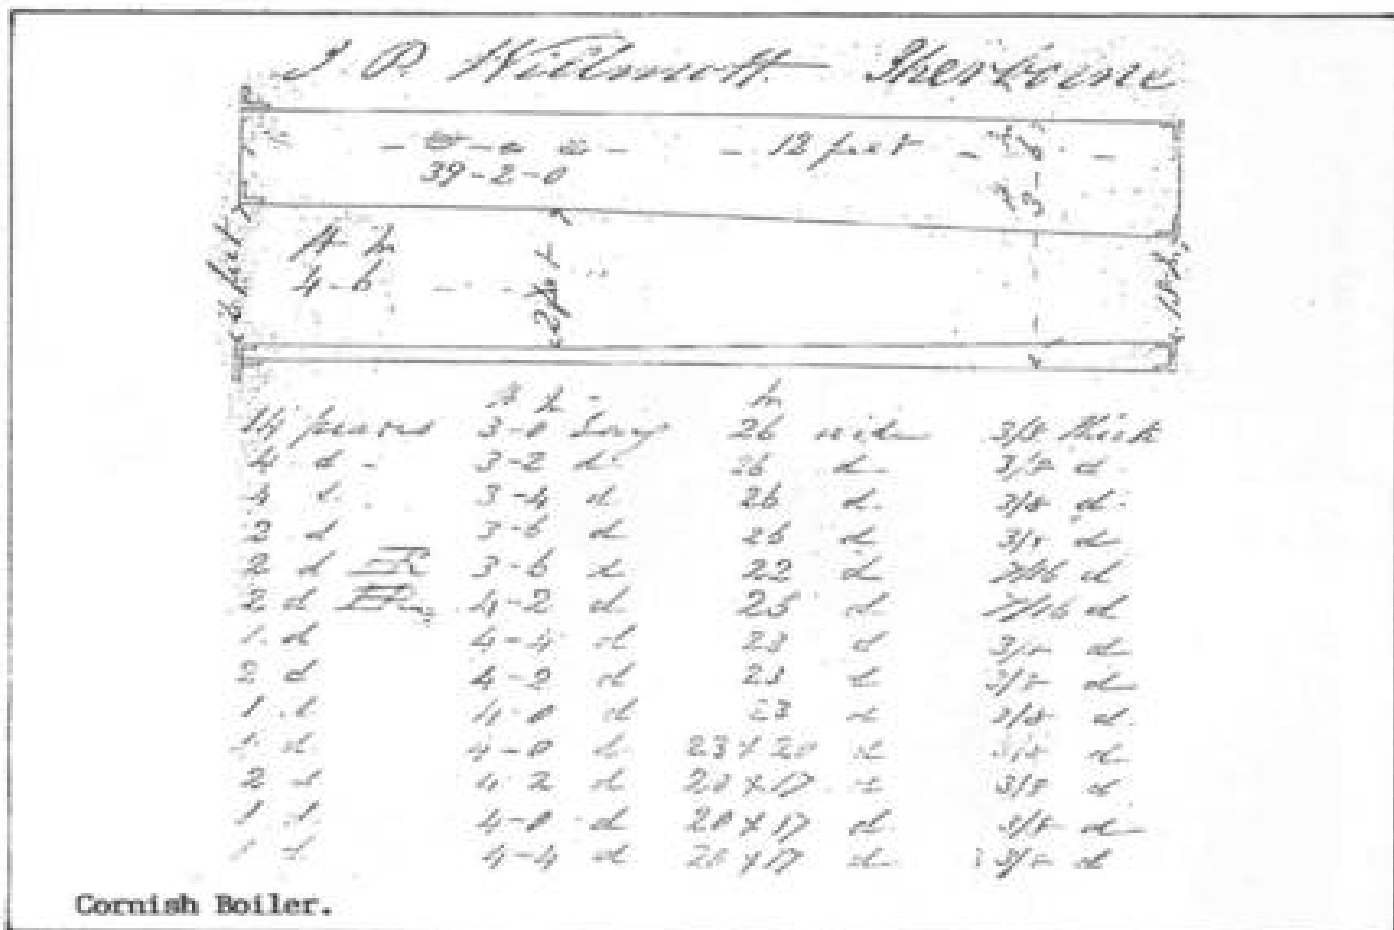 J. P. Willmott Sherborne
12 feet
39-2-0
2 feet
4-6
14 pieces 3-0 Long 26 wide 3/8 thick
4 d 3-2 d 26 d 3/8 d
4 d 3-4 d 26 d 3/8 d
2 d 3-6 d 26 d 3/8 d
2 d 3-6 d 22 d 7/16 d
2 d 4-2 d 25 d 7/16 d
1 d 4-4 d 23 d 3/8 d
2 d 4-2 d 23 d 3/8 d
1 d 4-0 d 23 d 3/8 d
1 d 4-0 d 23 x 20 d 3/8 d
2 d 4-2 d 20 x 17 d 3/8 d
1 d 4-0 d 20 x 17 d 3/8 d
1 d 4-4 d 20 x 17 d 3/8 d
Cornish Boiler.